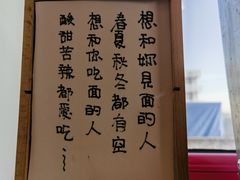 想和妳見面的人
春夏秋冬都有空
想和你吃面的人
酸甜苦辣都爱吃……